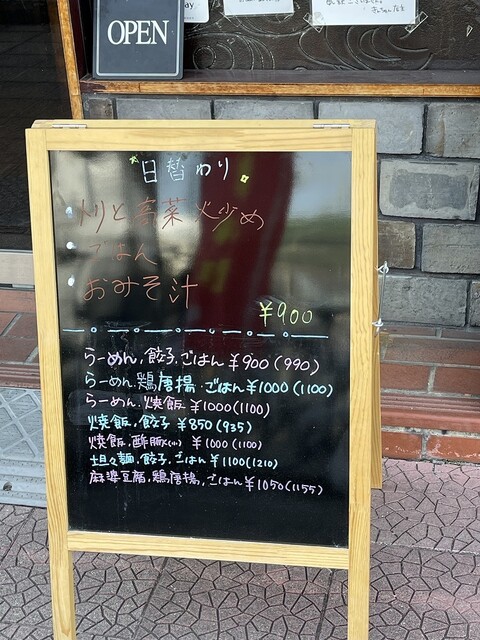 OPEN
日替わり
トリと高菜火炒め
ごはん
おみそ汁
¥900
らーめん.餃子.ごはん ¥900 (990)
らーめん.鶏唐揚.ごはん ¥1000 (1100)
らーめん.焼飯 ¥1000(1100)
焼飯.餃子 ¥850 (935)
焼飯.酢豚(小) ¥1000 (1100)
坦々麺.餃子.ごはん ¥1100(1210)
麻婆豆腐.鶏唐揚.ごはん ¥1050(1155)